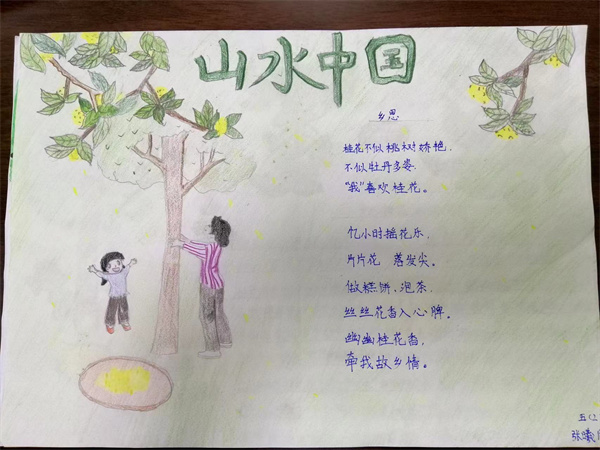 山水中国
乡思
桂花不似桃树娇艳,
不似牡丹多姿.
"我"喜欢桂花。
忆小时摇花乐,
片片花 落发尖。
做糕饼,泡茶,
丝丝花香入心脾。
幽幽桂花香,
牵我故乡情。
五(
张曦